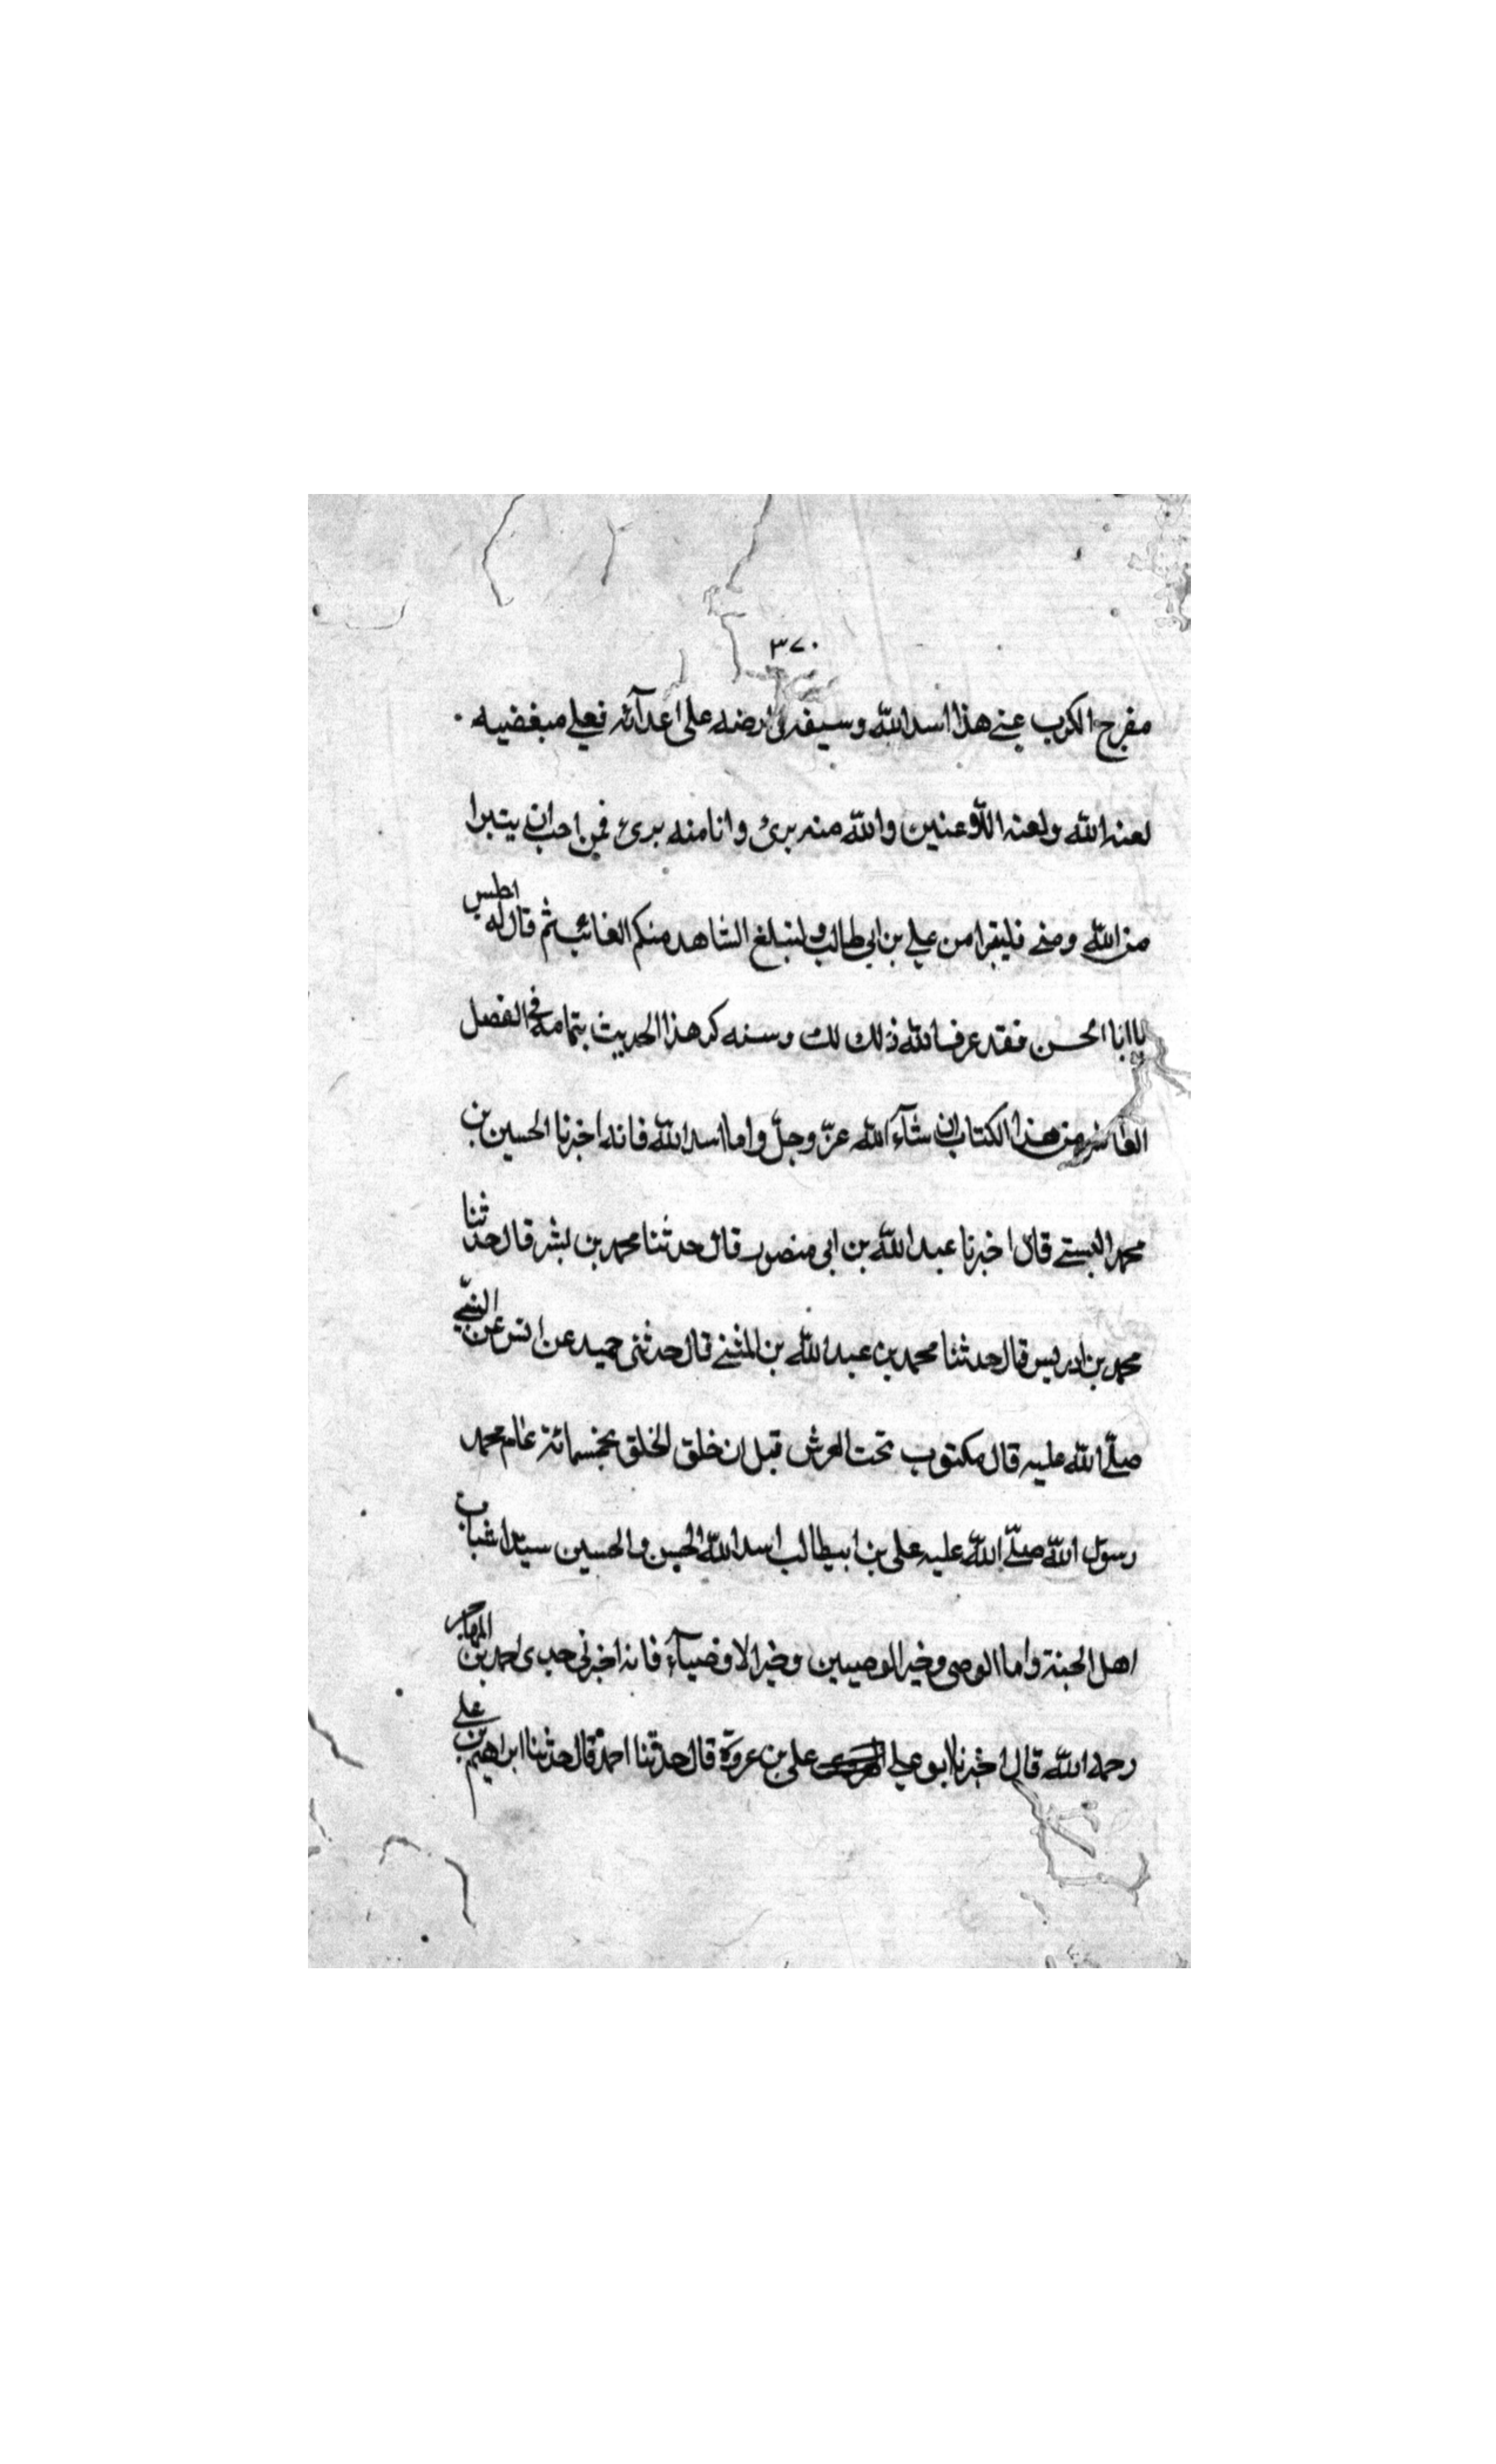 ٣٧٠
مفرج الكرب عني هذا اسد الله وسيفه في ارضه على اعدآئه فعلي مبغضيه
لعنه الله ولعنه اللاعنين والله منه برئ وانا منه برئ فمن احب ان يتبرا
من الله ومني فليتبرا من علي بن ابي طالب وليبلغ الشاهد منكم الغائب ثم قال له اجلس
يا ابا الحسن فقد عرف الله ذلك لك وسنذكر هذا الحديث بتمامه في الفصل
العاشر من هذا الكتاب ان شآء الله عزّ وجلّ واما اسد الله فانه اخبرنا الحسين بن
محمد البستي قال اخبرنا عبد الله بن ابي منصور قال حدثنا محمد بن بشر قال حدثنا
محمد بن ادريس قال حدثنا محمد بن عبد الله بن المثنى قال حدثنى حميد عن انس عن النبيّ
صلّى الله عليه قال مكتوب تحت العرش قبل ان خلق الخلق بخمسمائة عام محمد
رسول الله صلّى الله عليه على بن ابيطالب اسد الله الحسن والحسين سيّدا شباب
اهل الجنة واما الوصى وخير الوصيين وخير الاوصيآء فانه اخبرنى جدى احمد بن المهاجر
رحمه الله قال اخبرنا ابو علي على بن عروة قال حدثنا احمد قال حدثنا ابراهيم بن علي